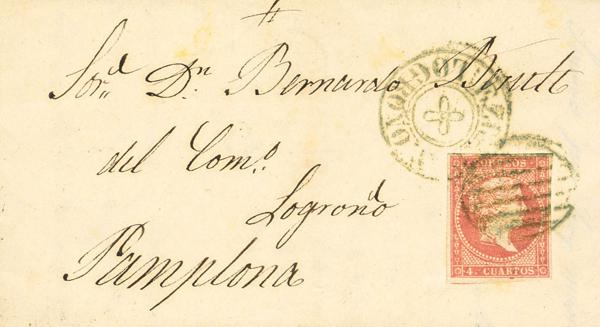 Sor. Dn. Bernardo Benito
del Como.
Logroño
Pamplona
4 CUARTOS